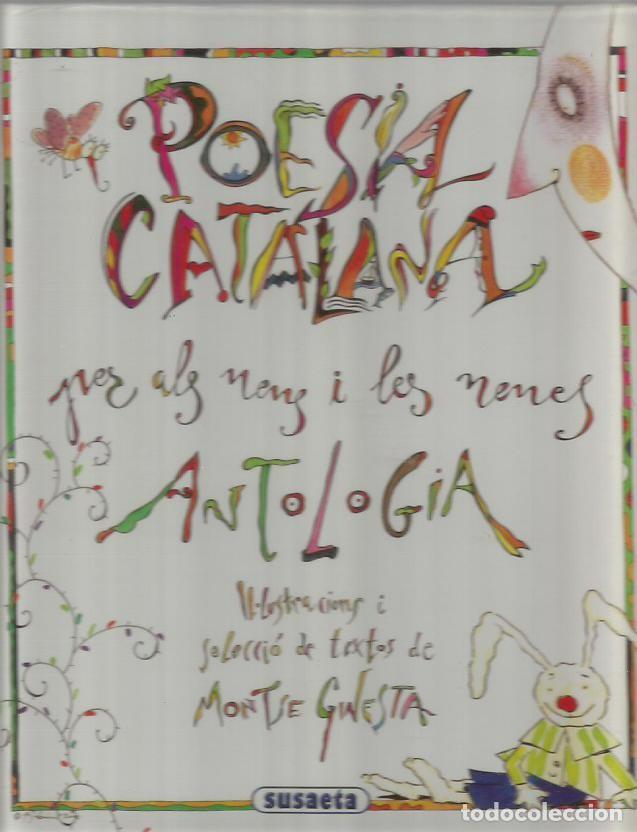 POESIA
CATALANA
per als nens i les nenes
ANTOLOGIA
Il·lustracions i
selecció de textos de
MONTSE GINESTA
susaeta
todocoleccion